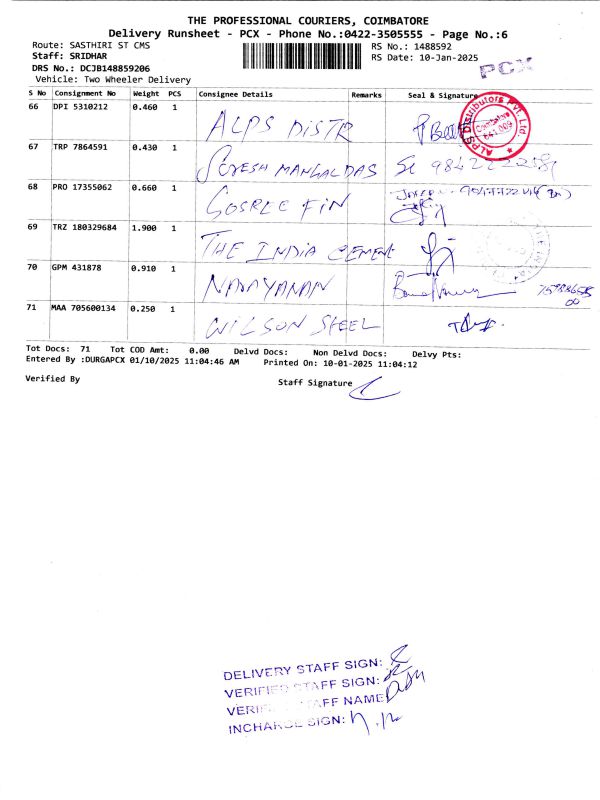 THE PROFESSIONAL COURIERS, COIMBATORE
Delivery Runsheet - PCX - Phone No.:0422-3505555 - Page No.:6
Route: SASTHIRI ST CMS
RS No.: 1488592
Staff: SRIDHAR
RS Date: 10-Jan-2025
DRS No.: DCJB148859206
PCX
Vehicle: Two Wheeler Delivery
S No Consignment No Weight PCS Consignee Details Remarks Seal & Signature
66 DPI 5310212 0.460 1 ALPS DISTR
ALPS Distributors Pvt. Ltd. Coimbatore 641 009
67 TRP 7864591 0.430 1 SURESH MANGALDAS
68 PRO 17355062 0.660 1 GOSREE FIN
69 TRZ 180329684 1.900 1 THE INDIA CEMENT
70 GPM 431878 0.910 1 NARAYANAN
71 MAA 705600134 0.250 1 WILSON STEEL
Tot Docs: 71 Tot COD Amt: 0.00 Delvd Docs: Non Delvd Docs: Delvy Pts:
Entered By :DURGAPCX 01/10/2025 11:04:46 AM Printed On: 10-01-2025 11:04:12
Verified By
Staff Signature
DELIVERY STAFF SIGN:
VERIFIED STAFF SIGN:
VERIFIED STAFF NAME
INCHARGE SIGN: